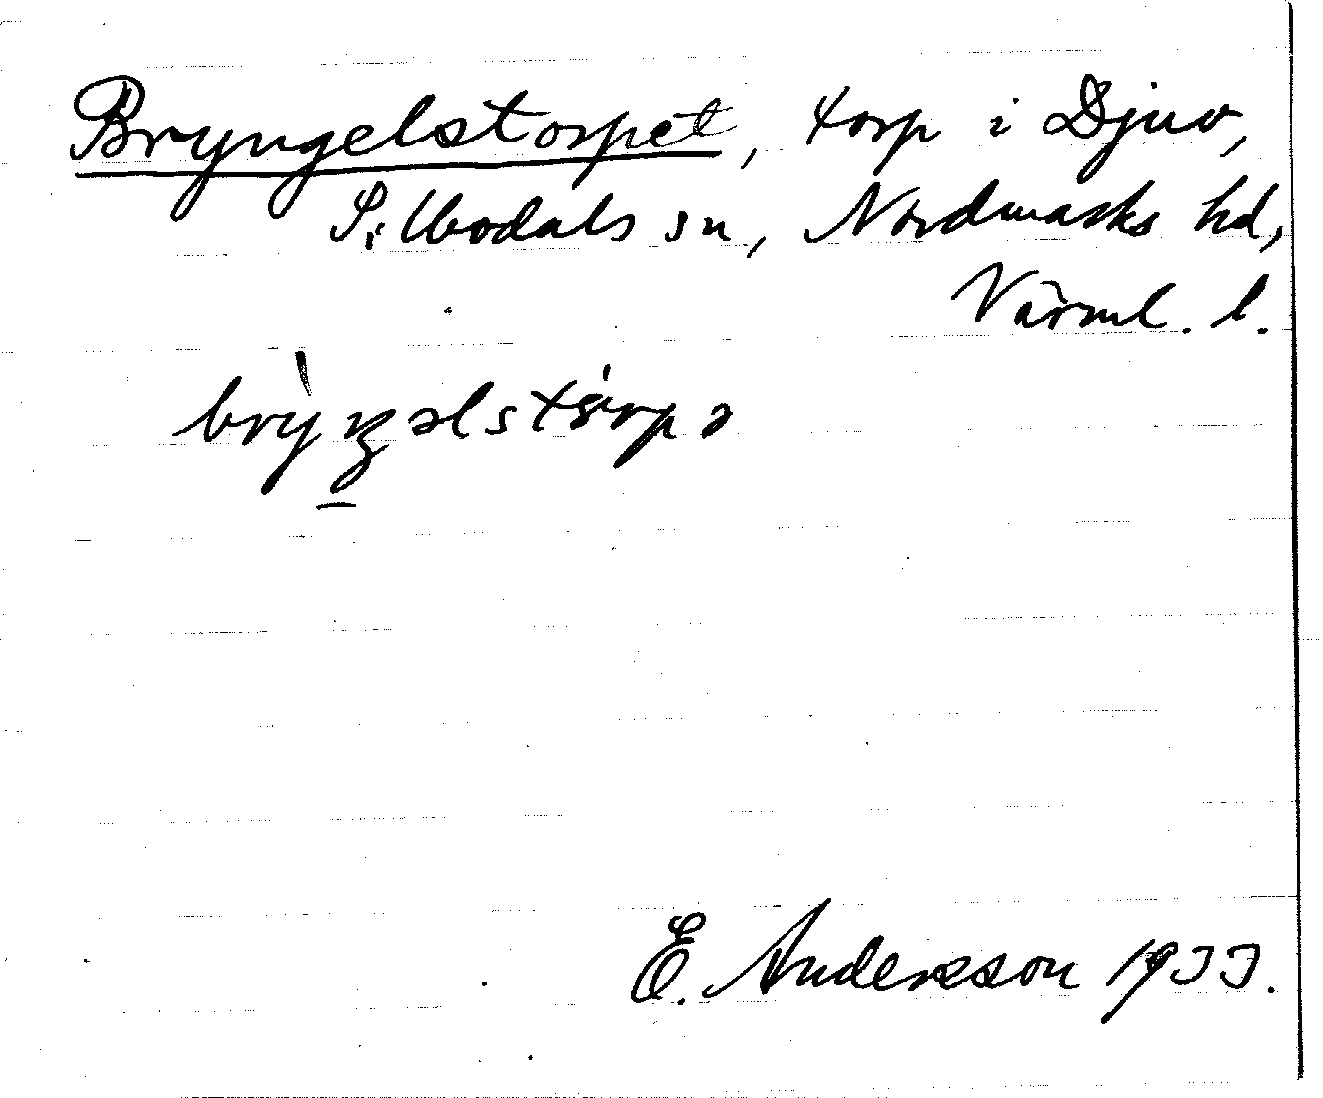 Bryngelstorpet, torp i Djuv,
Silbodals sn, Nordmarks hd,
Värml. l.
E. Andersson 1933.